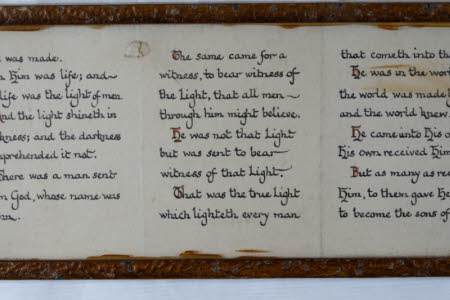 was made.
n him was life; and
life was the light of men
nd the light shineth in
kness; and the darkness
mprehended it not.
here was a man sent
m God, whose name was
hn.
The same came for a
witness, to bear witness of
the Light, that all men
through him might believe.
He was not that Light
but was sent to bear
witness of that Light.
That was the true Light
which lighteth every man
that cometh into th
He was in the worl
the world was made b
and the world knew
He came into His o
His own received Him
But as many as rec
Him, to them gave He
to become the sons of